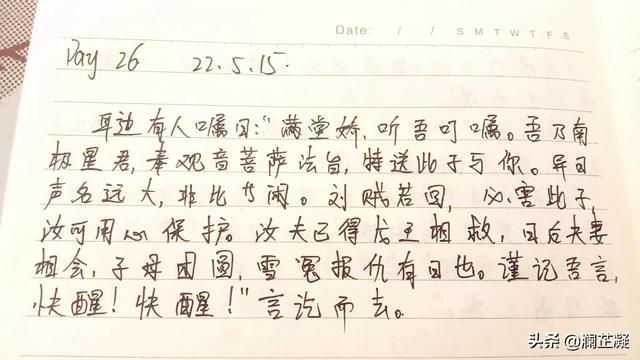 Date: / / S M T W T F S
Day 26 22.5.15.
耳边有人嘱曰:“满堂娇,听吾叮嘱。吾乃南
极星君,奉观音菩萨法旨,特送此子与你。异日
声名远大,非比等闲。刘贼若回,必害此子,
汝可用心保护。汝夫已得龙王相救,日后夫妻
相会,子母团圆,雪冤报仇有日也。谨记吾言,
快醒!快醒!”言讫而去。
头条 @澜芷凝